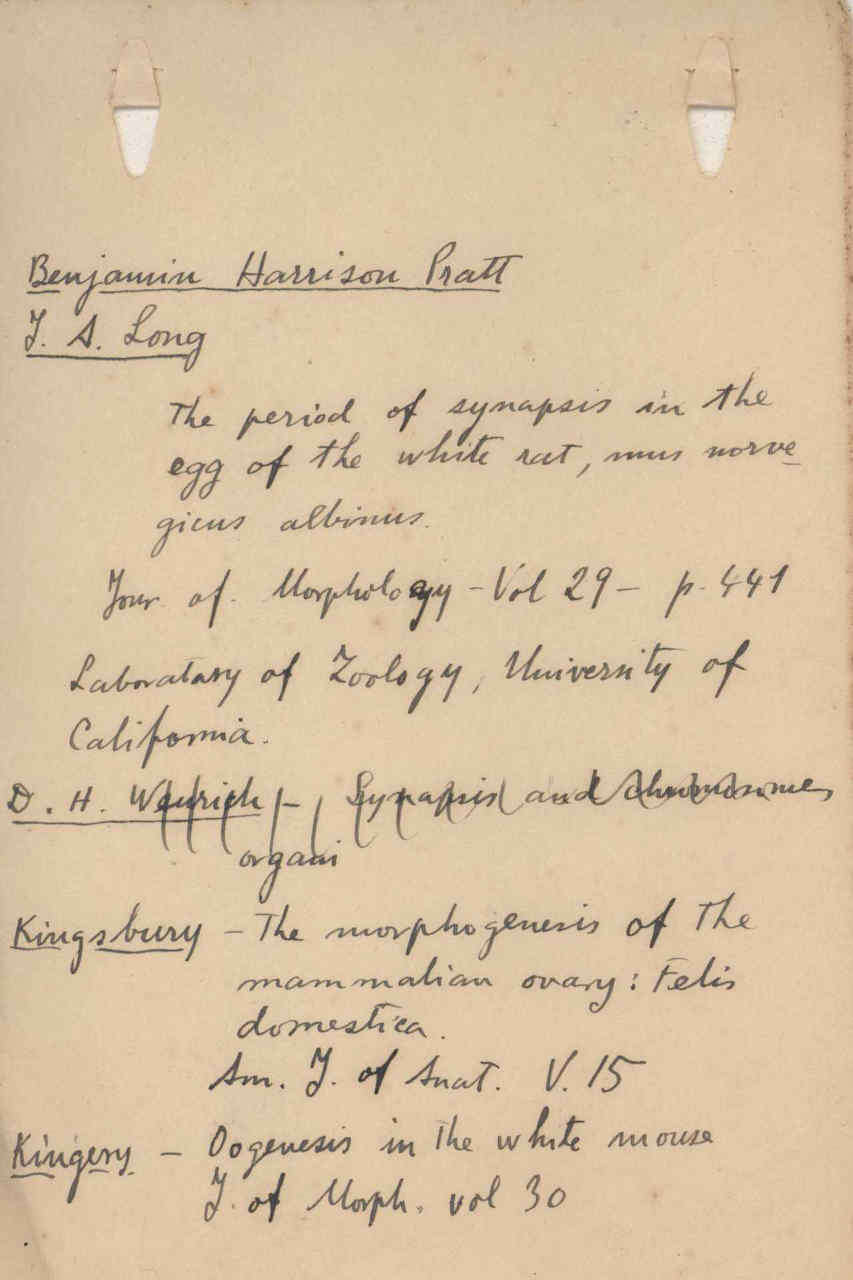 Benjamin Harrison Pratt
J. A. Long
The period of synapsis in the
egg of the white rat, mus norve-
gicus albinus.
Jour. of. Morphology - Vol 29 - p. 441
Laboratory of Zoology, University of
California.
D. H. Wenrich - Synapsis and chromosomes
organi
Kingsbury - The morphogenesis of the
mammalian ovary: Felis
domestica.
Am. J. of Anat. V. 15
Kingery - Oogenesis in the white mouse
J. of Morph. vol 30